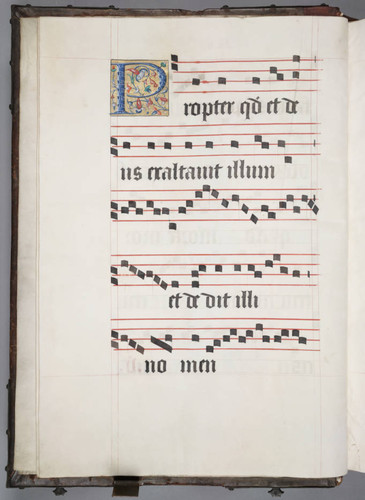 Propter qd et de
us exaltauit illum
et de dit illi
no men